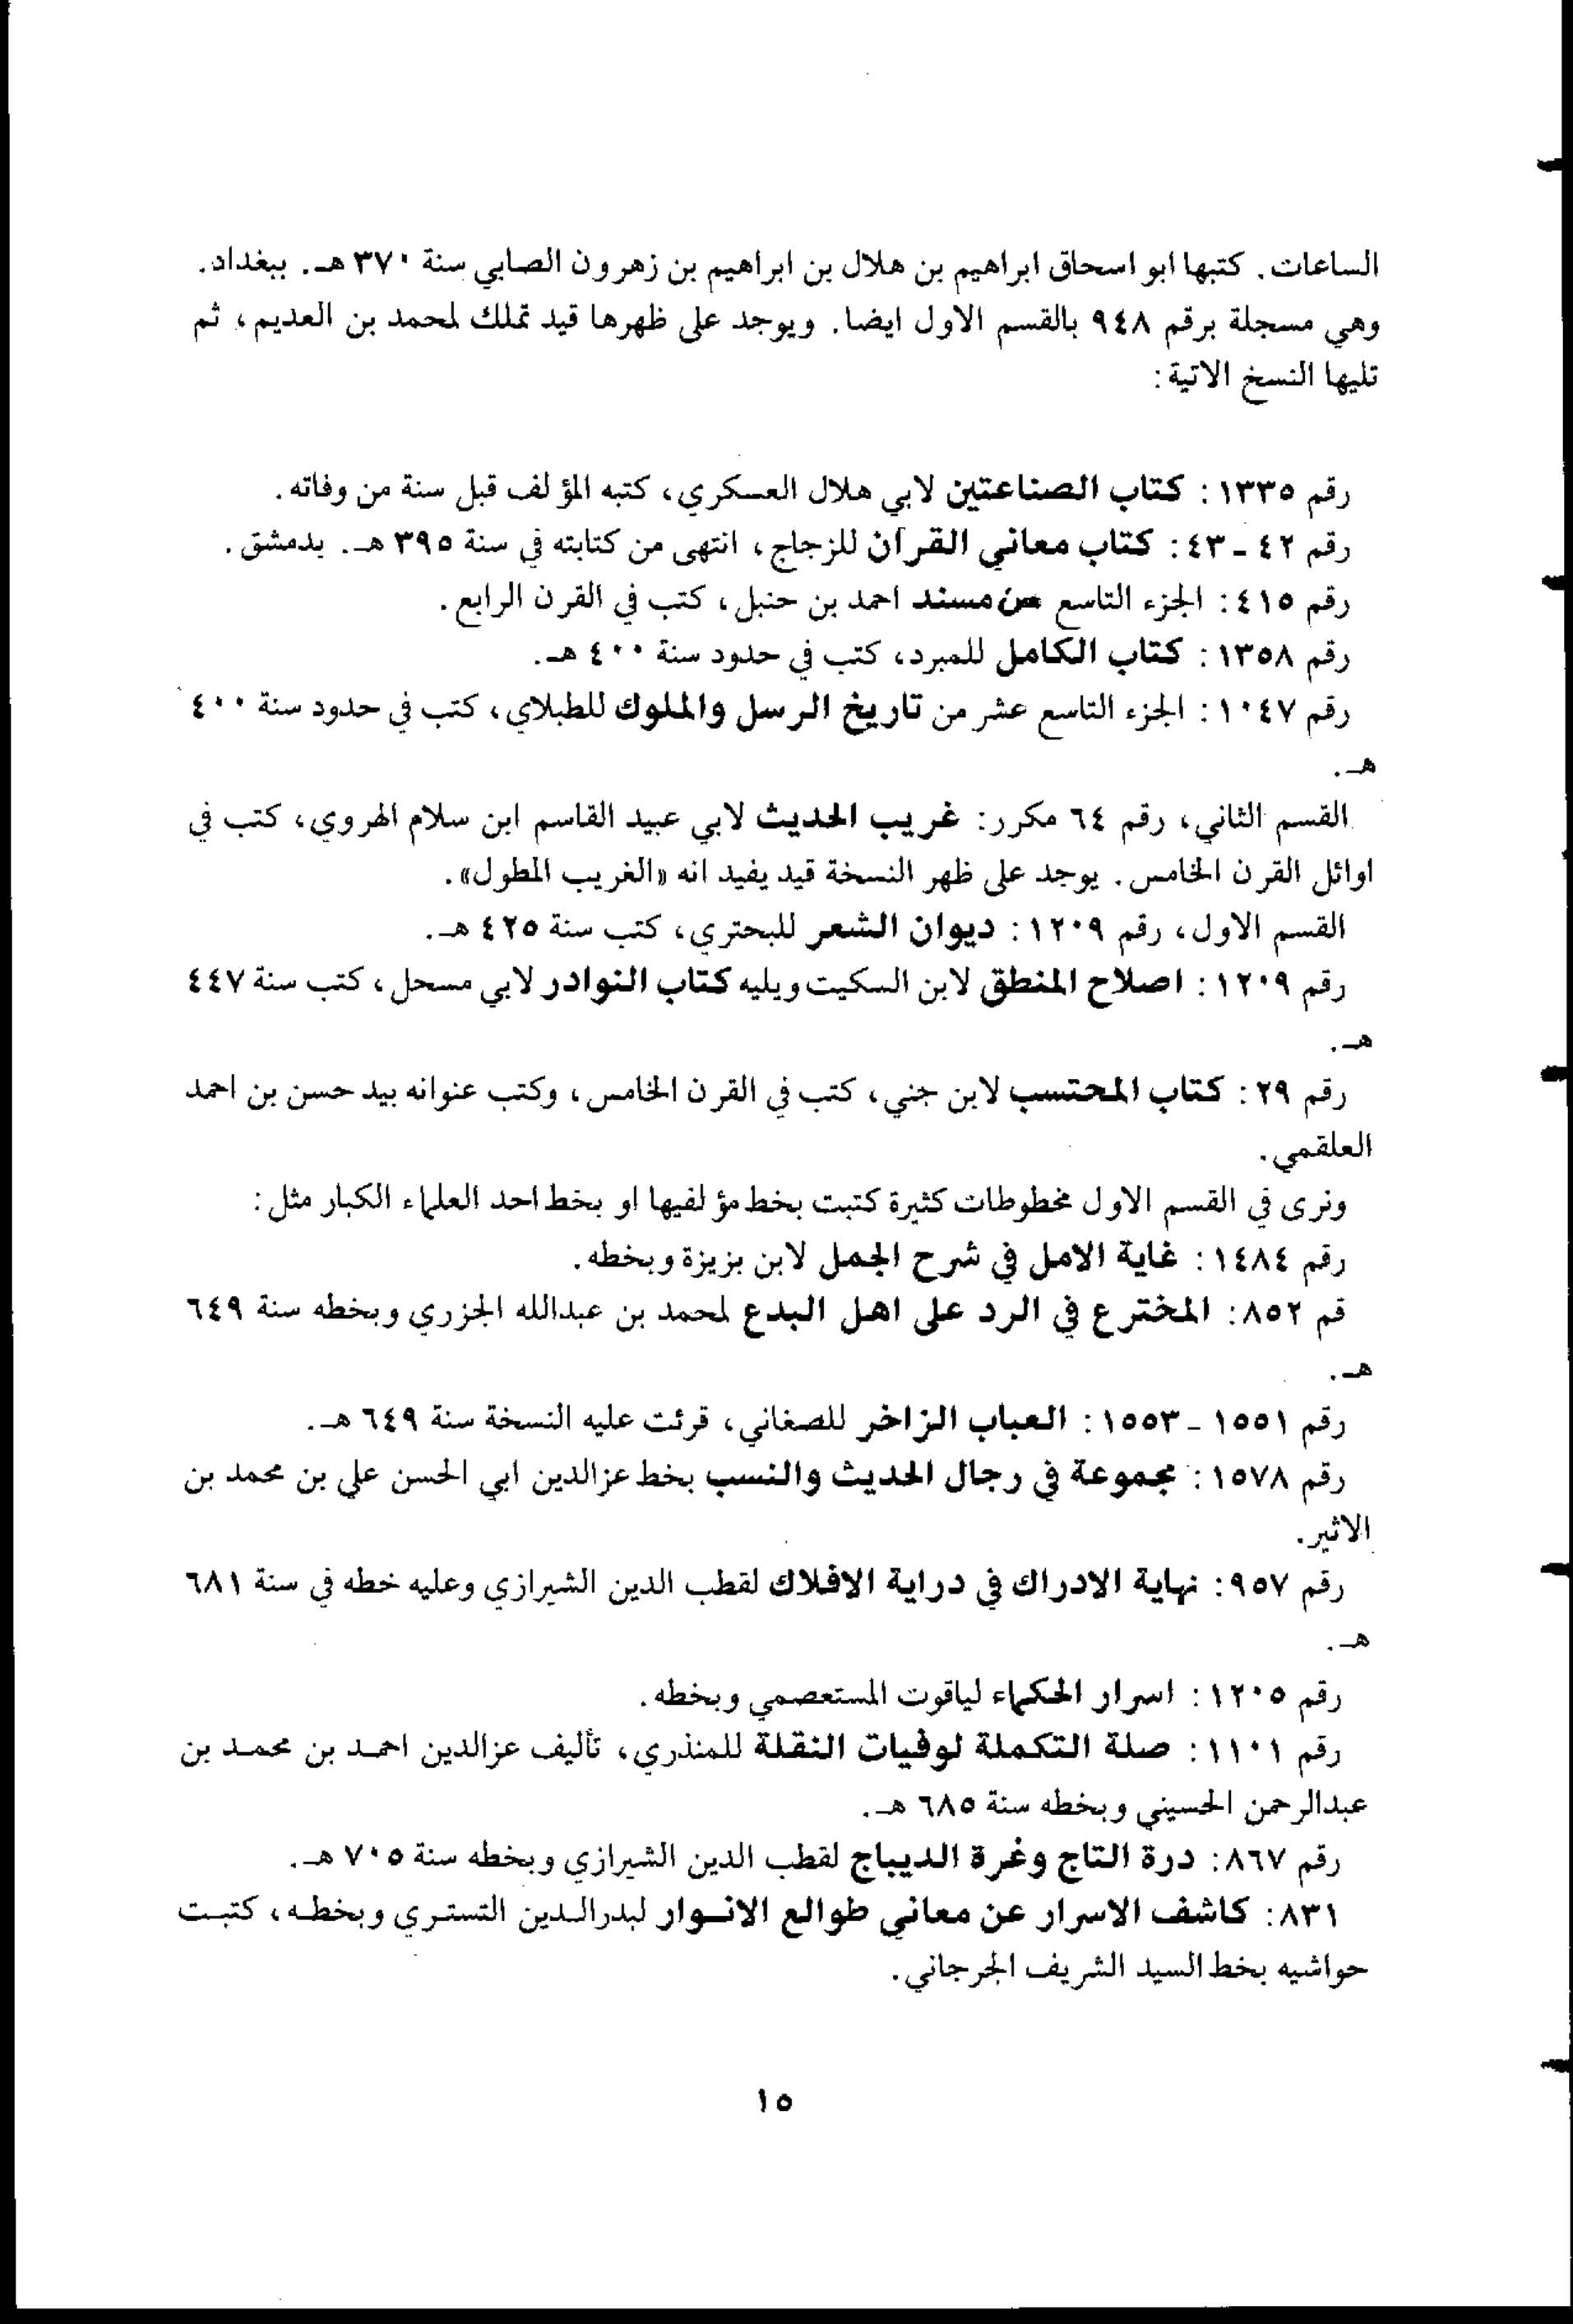 الساعات. كتبها ابو اسحاق ابراهيم بن هلال بن ابراهيم بن زهرون الصابي سنة ٣٧٠ هـ. ببغداد.
وهي مسجلة برقم ٩٤٨ بالقسم الاول ايضا. ويوجد على ظهرها قيد تملك لمحمد بن العديم، ثم
تليها النسخ الاتية:
رقم ١٣٣٥: كتاب الصناعتين لابي هلال العسكري، كتبه المؤلف قبل سنة من وفاته.
رقم ٤٢ - ٤٣: كتاب معاني القرآن للزجاج، انتهى من كتابته في سنة ٣٩٥ هـ. بدمشق.
رقم ٤١٥: الجزء التاسع من مسند احمد بن حنبل، كتب في القرن الرابع.
رقم ١٣٥٨: كتاب الكامل للمبرد، كتب في حدود سنة ٤٠٠ هـ.
رقم ١٠٤٧: الجزء التاسع عشر من تاريخ الرسل والملوك للطبلاي، كتب في حدود سنة ٤٠٠
هـ.
القسم الثاني، رقم ٦٤ مكرر: غريب الحديث لابي عبيد القاسم ابن سلام الهروي، كتب في
اوائل القرن الخامس. يوجد على ظهر النسخة قيد يفيد انه «الغريب المطول».
القسم الاول، رقم ١٢٠٩: ديوان الشعر للبحتري، كتب سنة ٤٢٥ هـ.
رقم ١٢٠٩: اصلاح المنطق لابن السكيت ويليه كتاب النوادر لابي مسحل، كتب سنة ٤٤٧
هـ.
رقم ٢٩: كتاب المحتسب لابن جني، كتب في القرن الخامس، وكتب عنوانه بيد حسن بن احمد
العلقمي.
ونرى في القسم الاول مخطوطات كثيرة كتبت بخط مؤلفيها او بخط احد العلماء الكبار مثل:
رقم ١٤٨٤: غاية الامل في شرح الجمل لابن بزيزة وبخطه.
قم ٨٥٢: المخترع في الرد على اهل البدع لمحمد بن عبدالله الجزري وبخطه سنة ٦٤٩
هـ.
رقم ١٥٥١ - ١٥٥٣: العباب الزاخر للصغاني، قرئت عليه النسخة سنة ٦٤٩ هـ.
رقم ١٥٧٨: مجموعة في رجال الحديث والنسب بخط عزالدين ابي الحسن علي بن محمد بن
الاثير.
رقم ٩٥٧: نهاية الادراك في دراية الافلاك لقطب الدين الشيرازي وعليه خطه في سنة ٦٨١
هـ.
رقم ١٢٠٥: اسرار الحكماء لياقوت المستعصمي وبخطه.
رقم ١١٠١: صلة التكملة لوفيات النقلة للمنذري، تأليف عزالدين احمد بن محمد بن
عبدالرحمن الحسيني وبخطه سنة ٦٨٥ هـ.
رقم ٨٦٧: درة التاج وغرة الديباج لقطب الدين الشيرازي وبخطه سنة ٧٠٥ هـ.
٨٣١: كاشف الاسرار عن معاني طوالع الانوار لبدرالدين التستري وبخطه، كتبت
حواشيه بخط السيد الشريف الجرجاني.
١٥